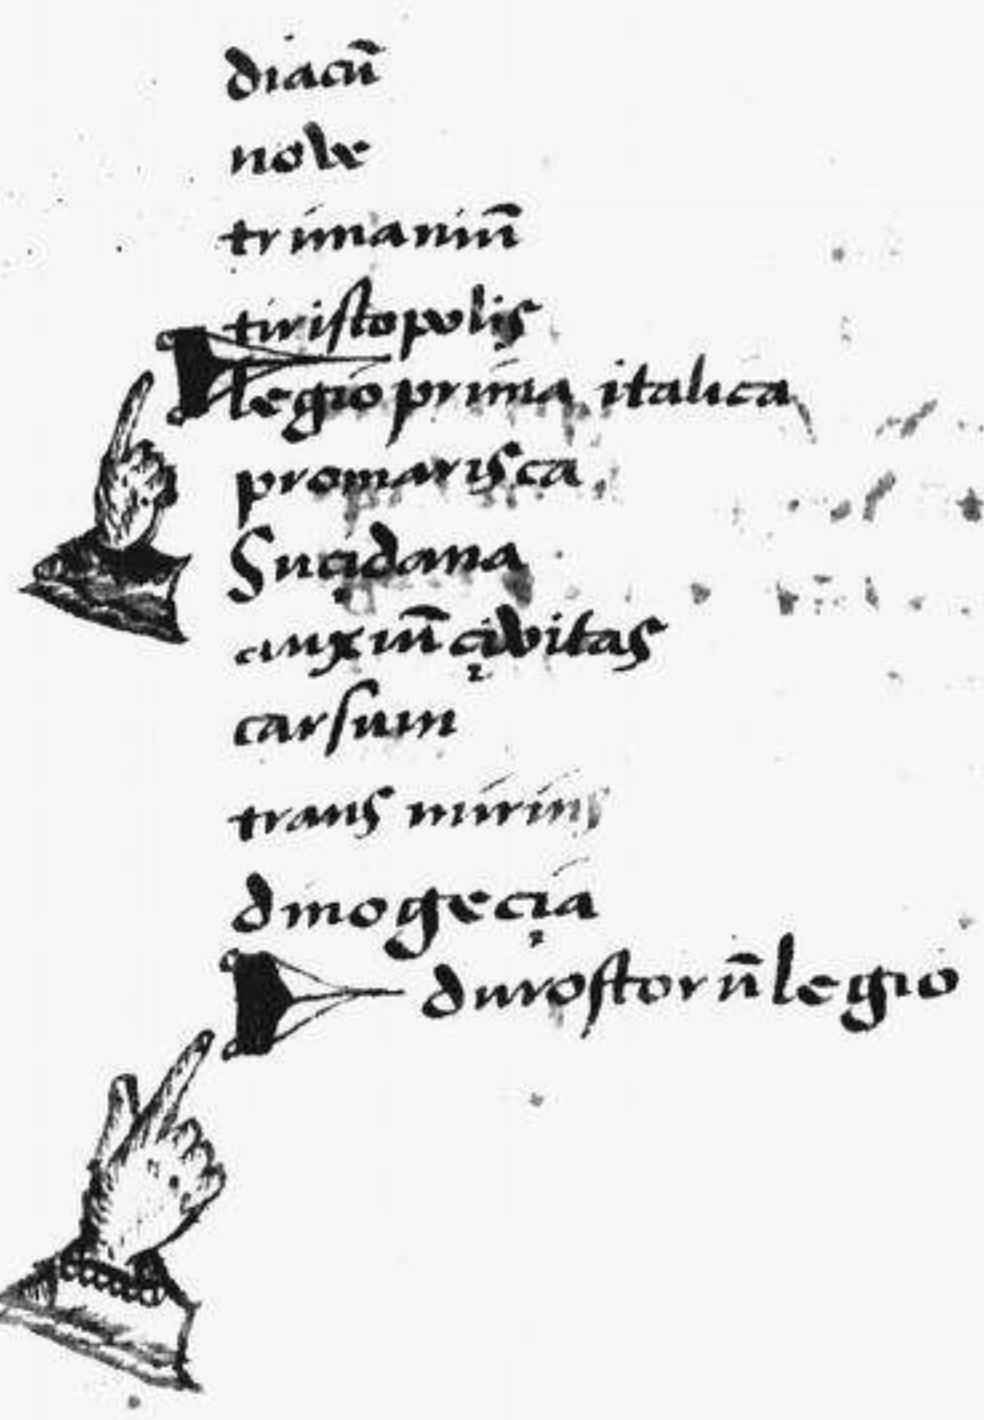 diacū
nove
trimaniū
tiristopolis
legio prima italica
promarisca
Sucidana
auxiū civitas
carsum
trans mirins
dinogecia
durostorū legio